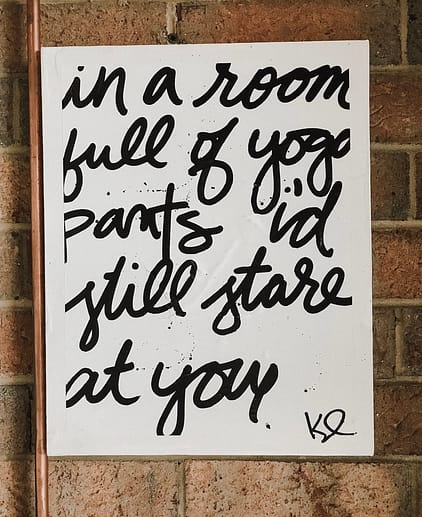 in a room
full of yoga
pants i'd
still stare
at you.